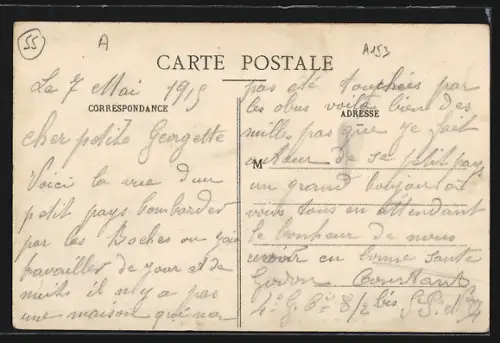 55
A
A153
CARTE POSTALE
CORRESPONDANCE
ADRESSE
M
Le 7 Mai 1915
cher petite Georgette
Voici la vue d'un
petit pays bombarder
par les Boches ou j'ai
travailler de jour et de
nuits il n'y a pas
une maison qui n'on
pas été touchées par
les obus voila bien des
milles pas que je fait
autour de se petit pays
un grand boujour a
vous tous en attendant
le bonheur de nous
revoir en bonne sante
Constant
4e G. Cie 8/2 bis